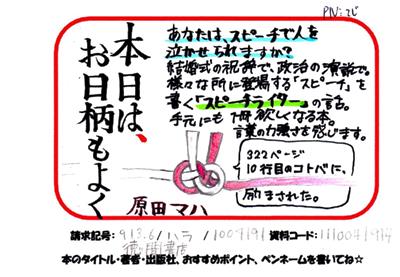 PN:てじ
本日は、
お日柄もよく
原田マハ
あなたは、スピーチで人を
泣かせられますか?
結婚式の祝辞で、政治の演説で。
様々な所に登場する「スピーチ」を
書く「スピーチライター」の言葉。
手元にも1冊欲しくなる本。
言葉の力強さを感じます。
322ページ
10行目のコトバに、
励まされた。
請求記号: 913.6/ハラ/
資料コード:
徳間書店
本のタイトル・著者・出版社、おすすめポイント、ペンネームを書いてね☆